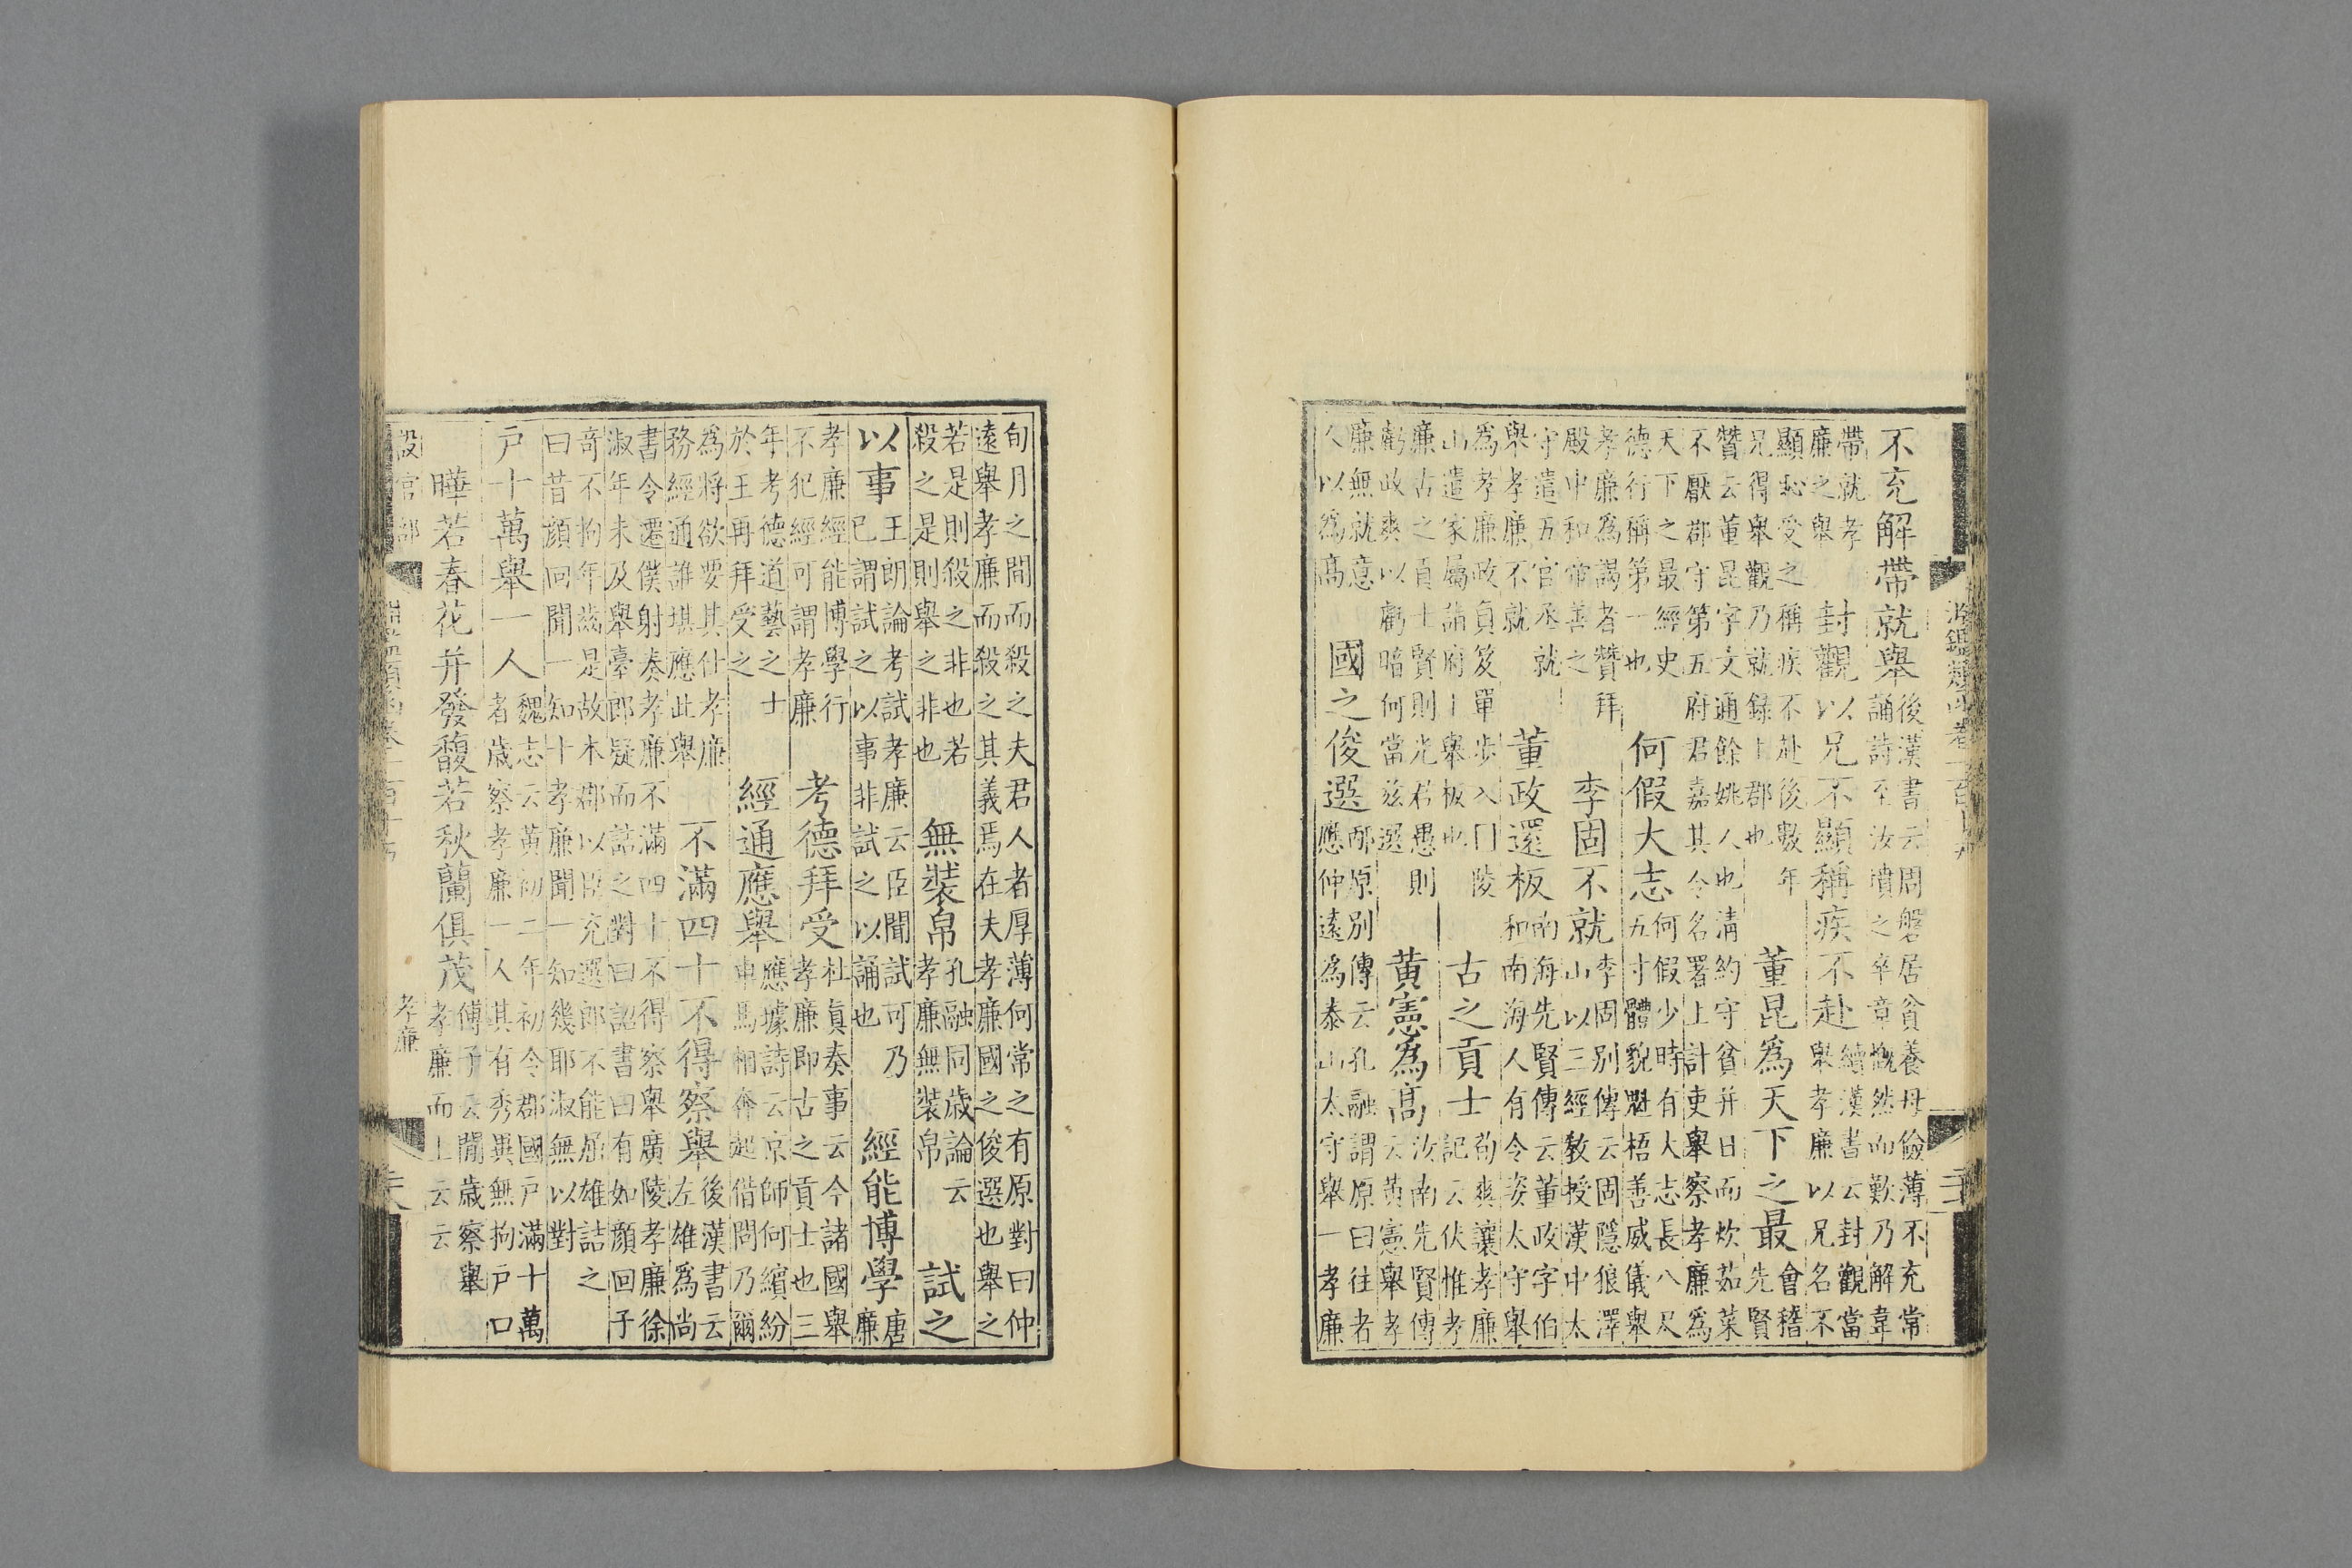 不充解帶就舉後漢書云周磐居貧養母儉薄不充常
誦詩至汝墳之卒章慨然而歎乃解韋
帶就孝
廉之舉
封觀以兄不顯稱疾不赴續漢書云封觀當
舉孝廉以兄名不
顯恥受之稱疾不赴後數年
兄得舉觀乃就錄上郡也
董昆為天下之最會稽
先賢
贊云董昆字文通餘姚人也清約守貧并日而炊茹菜
不厭郡守第五府君嘉其令名署上計吏舉察孝廉為
天下之最經史
德行稱第一也
何假大志何假少時有大志長八尺
五寸體貌魁梧善威儀舉
孝廉為謁者贊拜
殿中和帝善之
李固不就李固別傳云固隱狼澤
山以三經教授漢中太
守遣五官丞就
舉孝廉不就
董政還板南海先賢傳云董政字伯
和南海人有令姿太守舉
為孝廉政負笈單步入門陵
山遣家屬詣府上舉板也
古之貢士荀爽讓孝廉
記云伏惟孝
廉古之貢士賢則光君愚則
虧政爽以虧暗何當茲選
黃憲為高汝南先賢傳
云黃憲舉孝
廉無就意
人以為高
國之俊選邴原別傳云孔融謂原曰往者
應仲遠為泰山太守舉一孝廉
旬月之間而殺之夫君人者厚薄何常之有原對曰仲
遠舉孝廉而殺之其義焉在夫孝廉國之俊選也舉之
若是則殺之非也若
殺之是則舉之非也
無裝帛孔融同歲論云
孝廉無裝帛
試之
以事王朗論考試孝廉云臣聞試可乃
已謂試之以事非試之以誦也
經能博學唐
廉
孝廉經能博學行
不犯經可謂孝廉
考德拜受杜真奏事云今諸國舉
孝廉即古之貢士也三
年考德道藝之士
於王再拜受之
經通應舉應璩詩云京師何繽紛
車馬相奔起借問乃爾
為將欲要其仕孝廉
務經通誰堪應此舉
不滿四十不得察舉後漢書云
左雄為尚
書令遷僕射奏孝廉不滿四十不得察舉廣陵孝廉徐
淑年未及舉臺郎疑而詰之對曰詔書曰有如顏回子
奇不拘年齒是故本郡以臣充選郎不能屈雄詰之
曰昔顏回聞一知十孝廉聞一知幾耶淑無以對
戶十萬舉一人魏志云黃初二年初令郡國戶滿十萬
者歲察孝廉一人其有秀異無拘戶口
曄若春花并發馥若秋蘭俱茂傅子云閒歲察舉
孝廉而上云云
設官部
孝廉